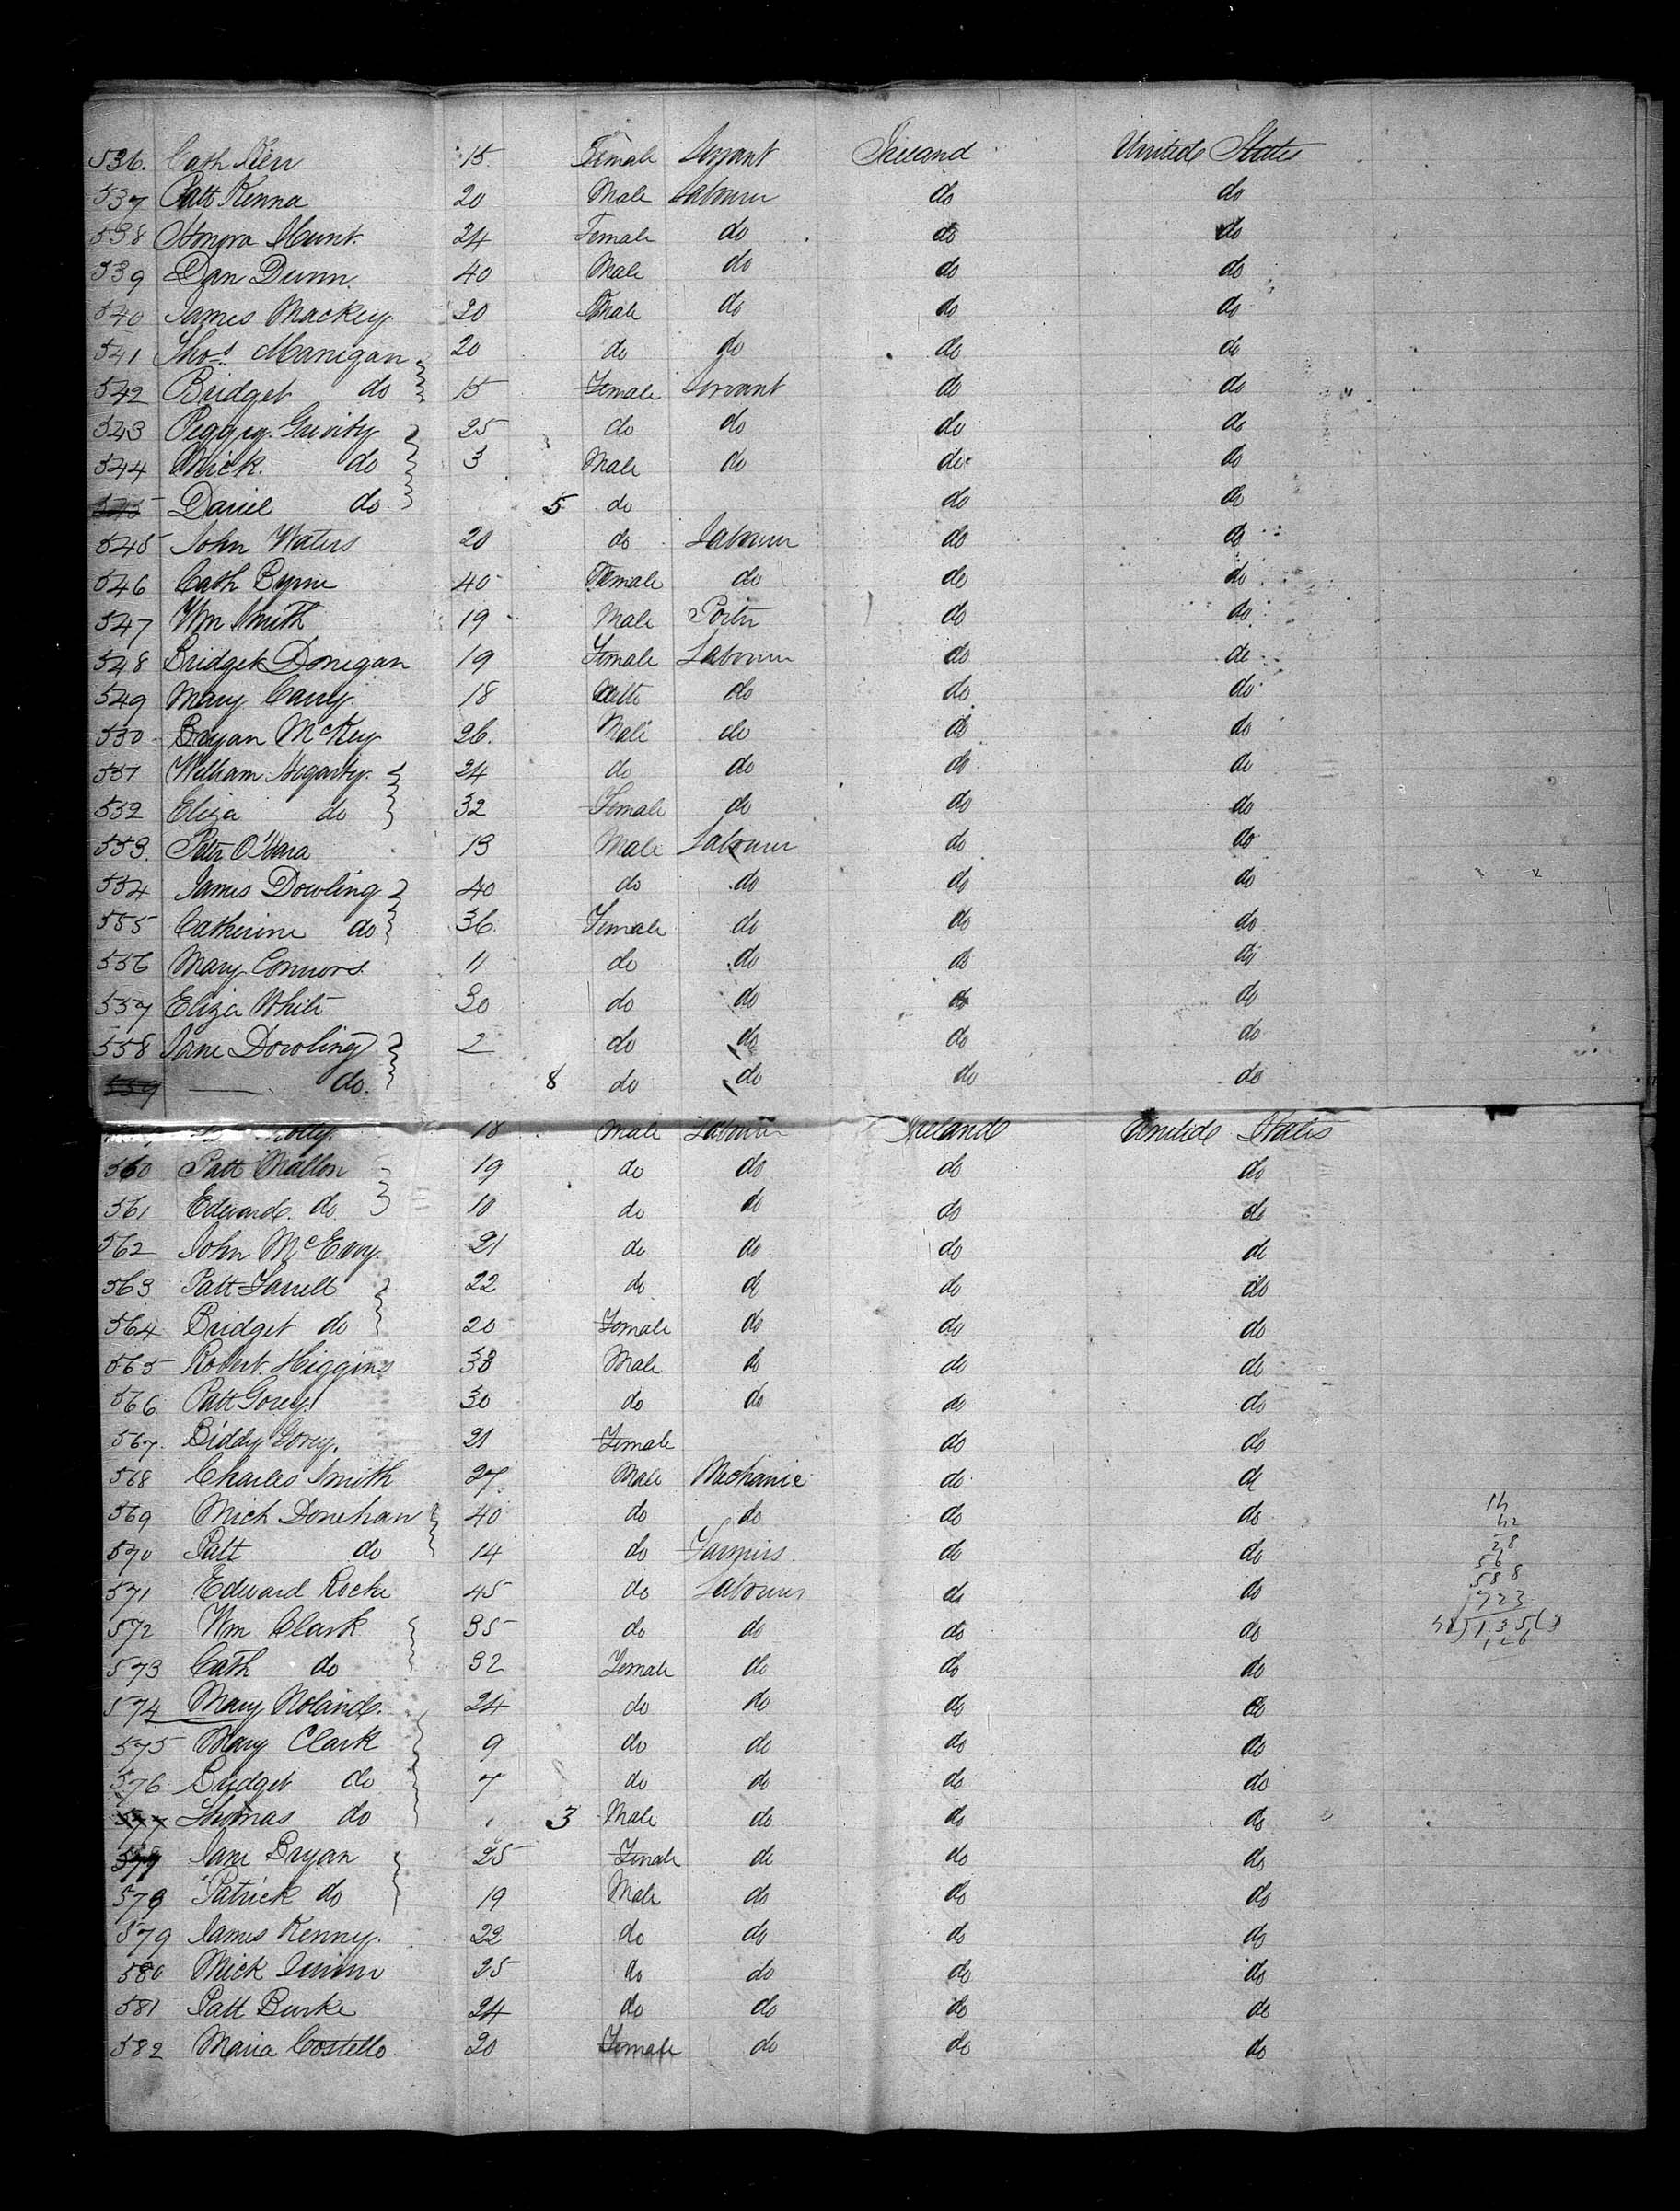 536. Cath Kerr 15 Female Servant Ireland United States
537 Patt Kenna 20 Male Labourer do do
538 Honora Hunt. 24 Female do do do
539 Dan Dunn. 40 Male do do do
540 James Mackey 20 Male do do do
541 Thos Manigan 20 do do do do
542 Bridget do 15 Female Servant do do
543 Peggy Grivity 25 do do do do
544 Mick. do 3 Male do do do
545 Daniel do 5 do do do
545 John Waters 20 do Labourer do do
546 Cath Byrne 40 Female do do do
547 Wm Smith 19 Male Porter do do
548 Bridget Donegan 19 Female Labourer do do
549 Mary Carry. 18 do do do
550 Bryan McKey 26. Male do do do
551 William Hegarty. 24 do do do do
552 Eliza do 32 Female do do do
553. Peter O'Hara 13 Male Labourer do do
554 James Dowling 40 do do do do
555 Catherine do 36. Female do do do
556 Mary Connors. 11 do do do do
557 Eliza White 30 do do do do
558 Jane Dowling 2 do do do do
559 —— do. 8 do do do do
18 Male Labourer Ireland United States
560 Patt Mallon 19 do do do do
561 Edward. do 10 do do do do
562 John McEvoy. 21 do do do do
563 Patt Farrell 22 do do do do
564 Bridget do 20 Female do do do
565 Robert. Higgins 38 Male do do do
566 Patt Gorey. 30 do do do do
567. Biddy Gorey. 21 Female do do
568 Charles Smith 27. Male Mechanic do do
569 Mich Donehan 40 do do do do
570 Patt do 14 do Farmers. do do
571 Edward Roche 45 do Labourer do do
572 Wm Clark 35 do do do do
573 Cath do 32 Female do do do
574 Mary Noland. 24 do do do do
575 Mary Clark 9 do do do do
576 Bridget do 7 do do do do
577 Thomas do 3 Male do do do
Jane Bryan 25 Female do do do
578 Patrick do 19 Male do do do
579 James Kenny. 22 do do do do
580 Mick 25 do do do do
581 Patt Burke 24 do do do do
582 Maria Costello 20 Female do do do